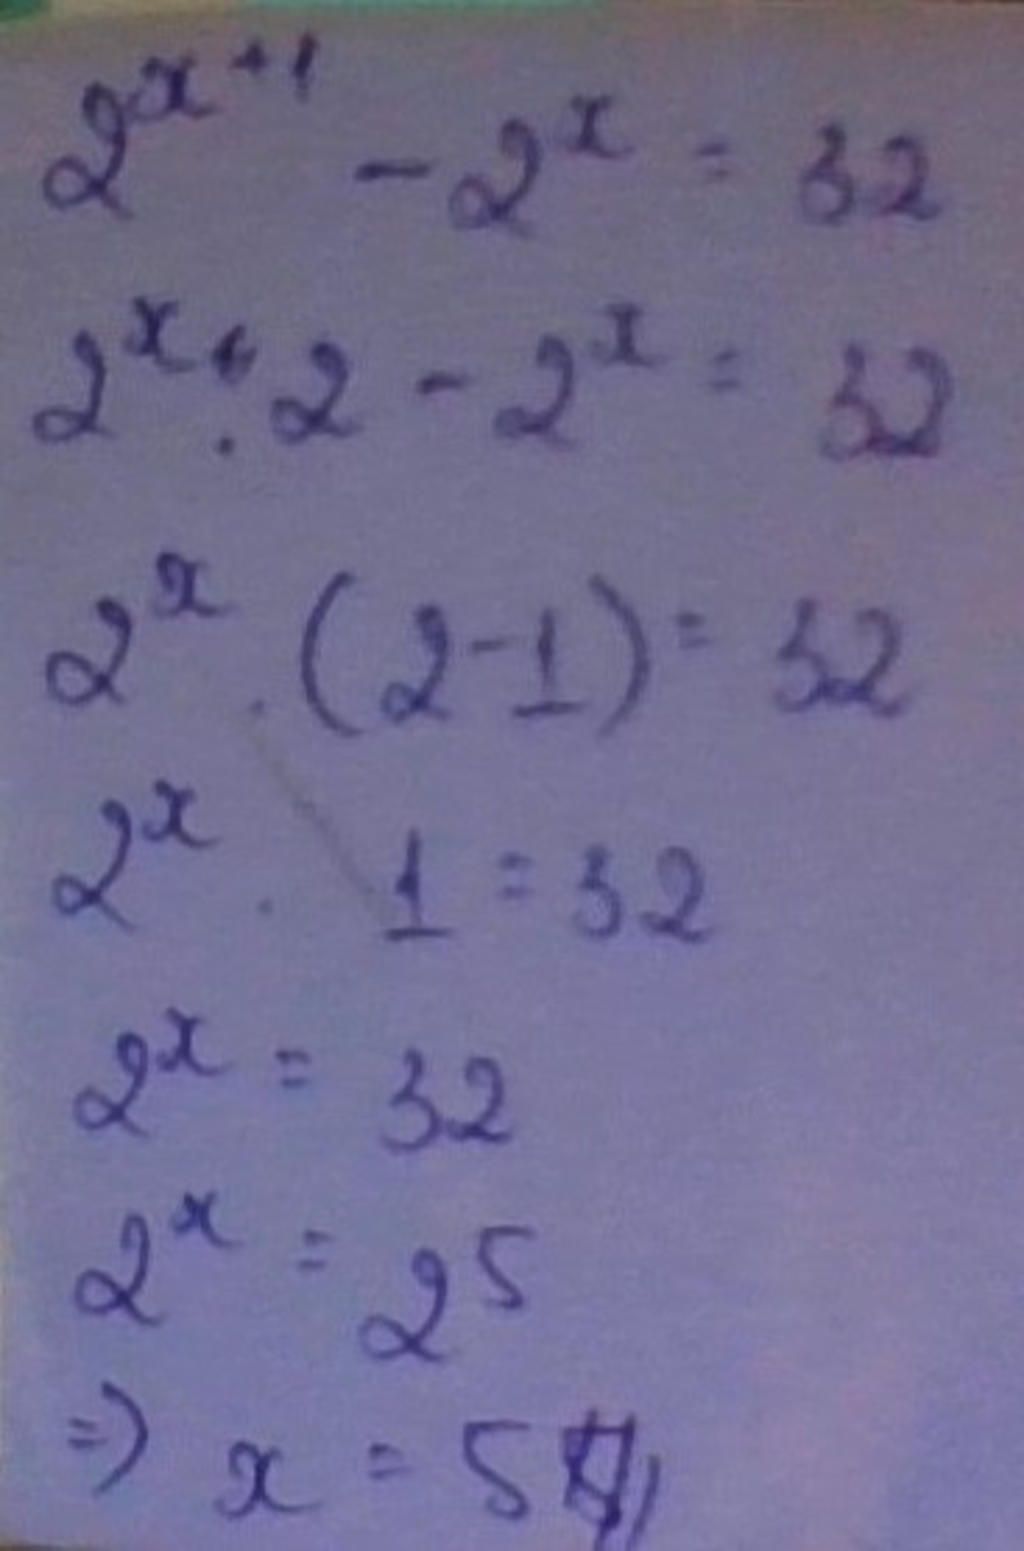 2^{x+1} - 2^x = 32
2^x . 2 - 2^x = 32
2^x . (2-1) = 32
2^x . 1 = 32
2^x = 32
2^x = 2^5
=> x = 5